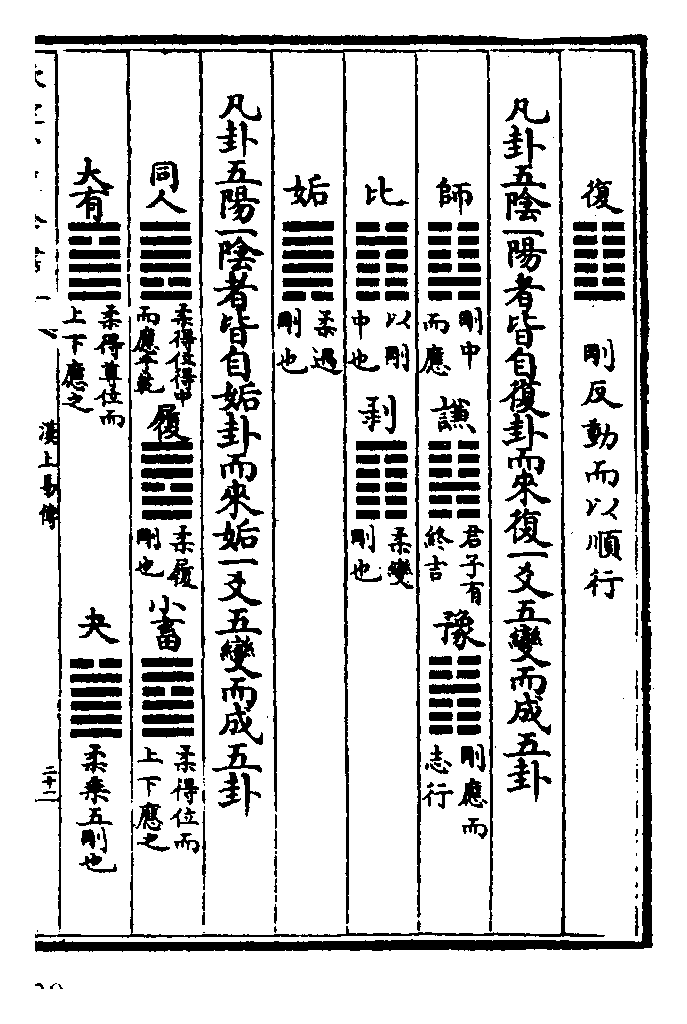 復 剛反動而以順行
凡卦五陰一陽者皆自復卦而來復一爻五變而成五卦
師 剛中而應 謙 君子有終吉 豫 剛應而志行
比 以剛中也 剥 柔變剛也
姤 柔遇剛也
凡卦五陽一陰者皆自姤卦而來姤一爻五變而成五卦
同人 柔得位得中而應乎乾 履 柔履剛也 小畜 柔得位而上下應之
大有 柔得尊位而上下應之 夬 柔乗五剛也
漢上易傳
二十二